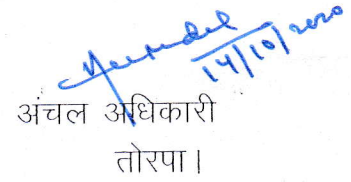 14/10/2020
अंचल अधिकारी
तोरपा।